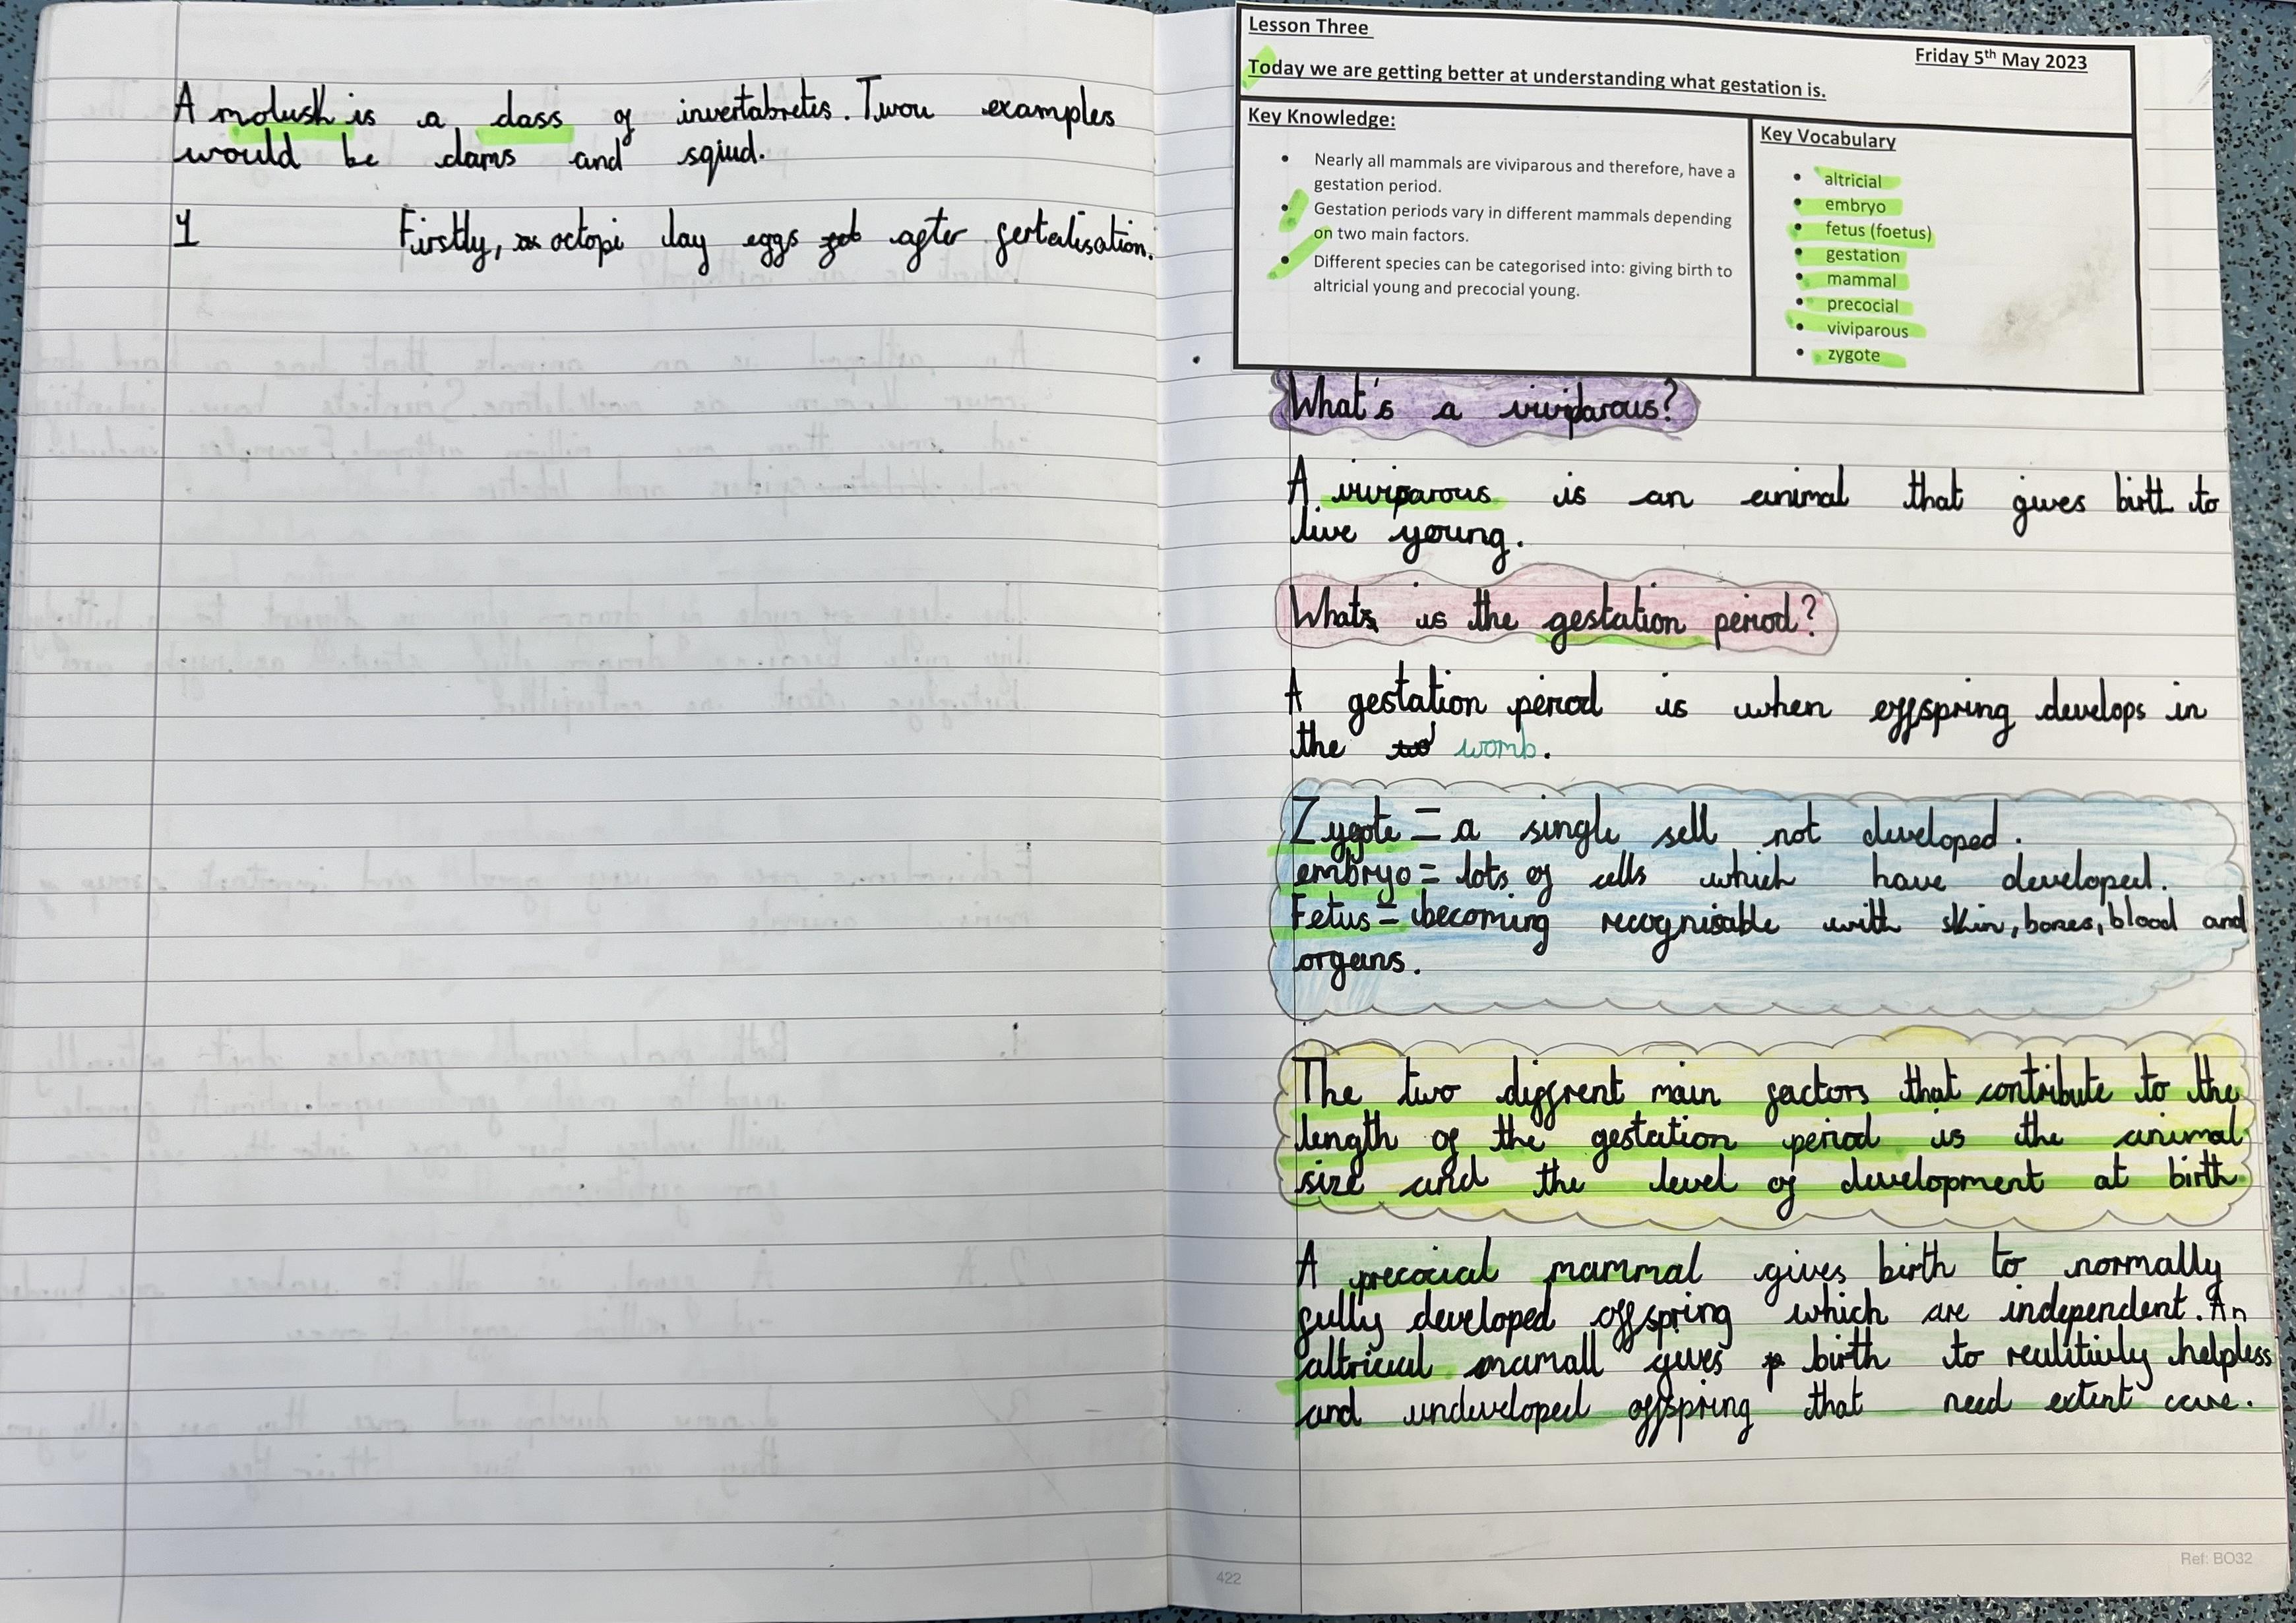 A molush is a class of invertabretes. Twou examples
would be clams and sqiud.
1 Firstly, octopi lay eggs after fertalisation.
Lesson Three
Friday 5th May 2023
Today we are getting better at understanding what gestation is.
Key Knowledge:
• Nearly all mammals are viviparous and therefore, have a
gestation period.
• Gestation periods vary in different mammals depending
on two main factors.
• Different species can be categorised into: giving birth to
altricial young and precocial young.
Key Vocabulary
• altricial
• embryo
• fetus (foetus)
• gestation
• mammal
• precocial
• viviparous
• zygote
What's a viviparous?
A viviparous is an animal that gives birth to
live young.
What is the gestation period?
A gestation period is when offspring develops in
the womb.
Zygote = a single sell not developed.
embryo = lots of cells which have developed.
Fetus = becoming recognisable with skin, bones, blood and
organs.
The two diffrent main factors that contribute to the
length of the gestation period is the animal
size and the level of development at birth
A precocial mammal gives birth to normally
fully developed offspring which are independent. An
altricial mamall gives birth to realitivly helpless
and undeveloped offspring that need extent care.
422
Ref: BO32